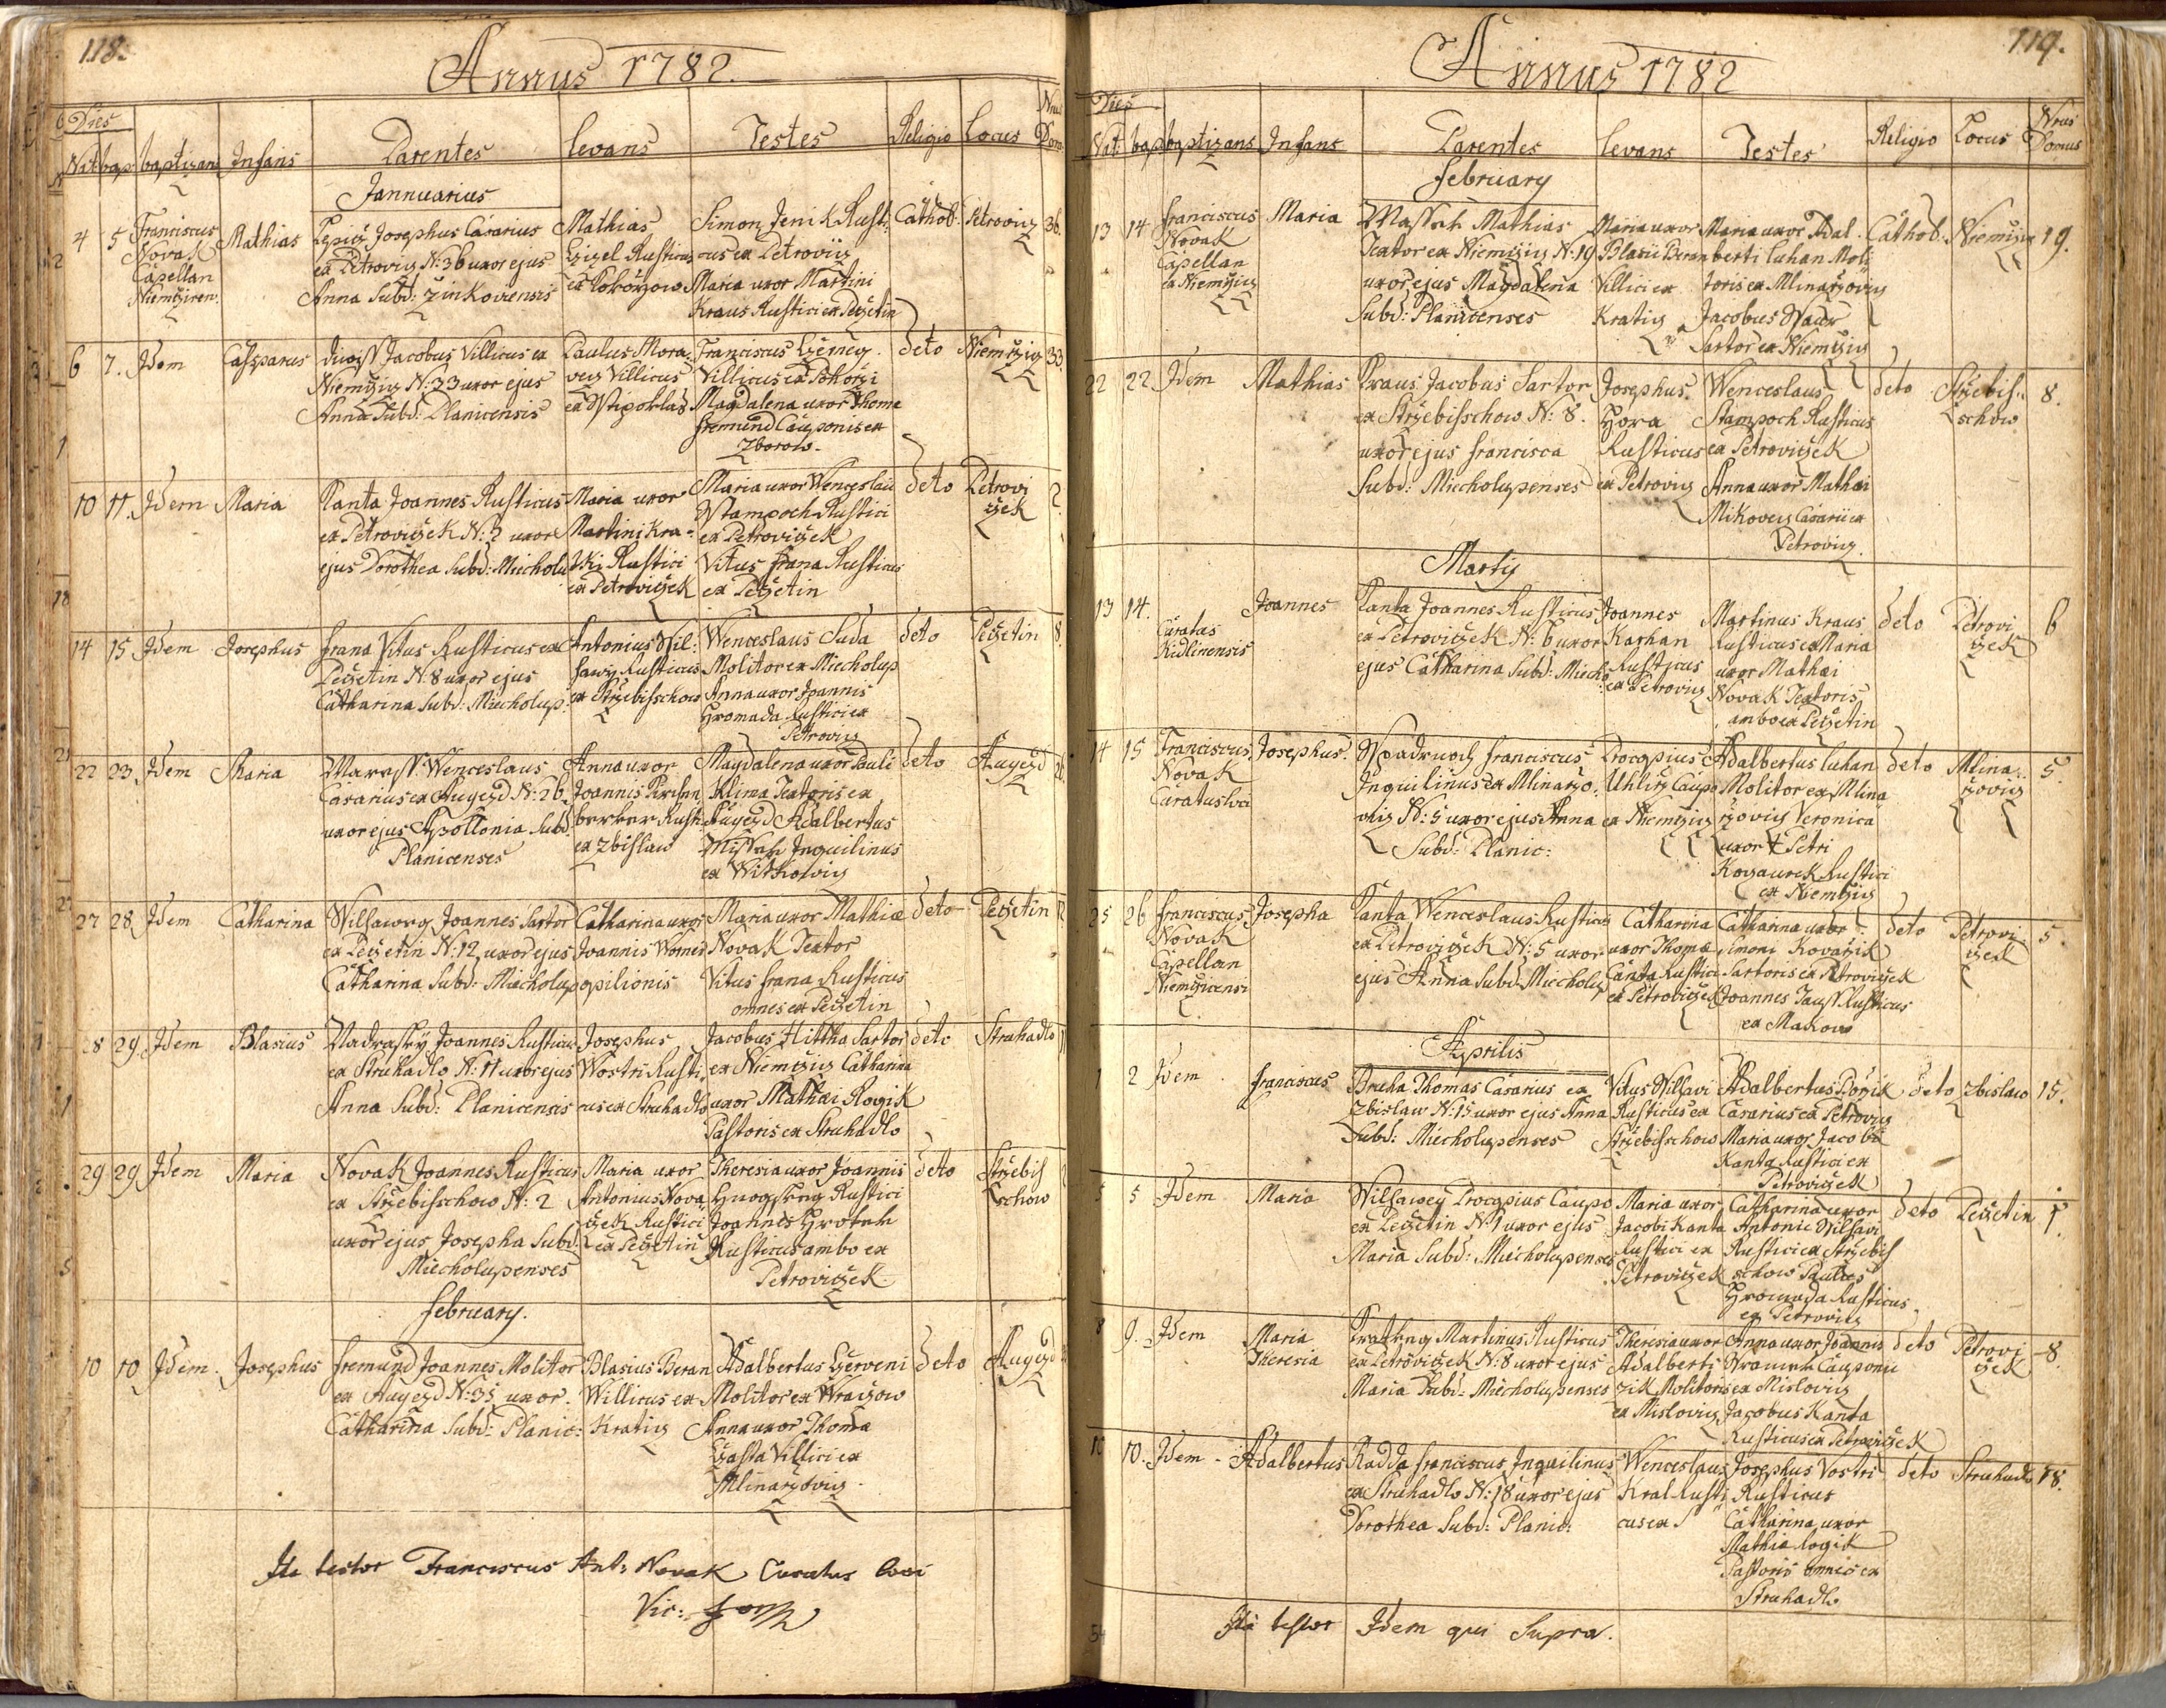 118.
Annus 1782.
Dies
Nat. bap. baptizans Infans Parentes Levans Testes Religio Locus Nrus Domus
Jannuarius
4 5 Franciscus Novak Capellan Niemtziren.
Mathias
Josephus Casarius
ex Petroviz N: 36 uxor ejus
Anna Subd: Zinkoviensis
Mathias
Rusticus
Simon Jenik Rusti-
cus ex Petroviz
Maria uxor Martini
Kraus Rustici ex Petzetin
Cathol. Petroviz 36.
6 7. Idem Casparus
Jacobus Villicus ex
Niemtziz N: 33 uxor ejus
Anna Subd: Planicensis
Paulus Mora-
vez Villicus
Franciscus
Villicus ex
Magdalena uxor Thomæ
Fremund Cauponis ex
Zborow.
deto Niemtziz 33
10 11. Idem Maria
Kanta Joannes Rusticus
ex Petrovitzek N: 2 uxor
ejus Dorothea Subd: Miecholu
Maria uxor
Martini Kra-
Rustici
ex Petrovitzek
Maria uxor Wenceslai
Stampoch Rustici
ex Petrovitzek
Vitus Frana Rusticus
ex Petzetin
deto Petrovi
tzek 2
14 15 Idem Josephus
Frana Vitus Rusticus ex
Petzetin N: 8 uxor ejus
Catharina Subd: Miecholup.
Antonius Wil-
Rusticus
ex Strzebischow
Wenceslaus Suda
Molitor ex Miecholup
Anna uxor Joannis
Hromada Rustici ex
Petroviz
deto Petzetin 8.
22 23 Idem Maria
Wenceslaus
Casarius ex Augezd N: 26
uxor ejus Apollonia Subd:
Planicenses
Anna uxor
Joannis
Rusti:
ex Zbislaw
Magdalena uxor Pauli
Klima Textoris ex
Augezd Adalbertus
Inquilinus
ex Witkowiz
deto Augezd 26
27 28 Idem Catharina
Wilsawey Joannes Sartor
ex Petzetin N: 12 uxor ejus
Catharina Subd: Miecholup
Catharina uxor
Joannis
opilionis
Maria uxor Mathiæ
Novak Textor
Vitus Frana Rusticus
omnes ex Petzetin
deto Petzetin 12
28 29. Idem Blasius
Joannes Rusticus
ex Struhadlo N: 11 uxor ejus
Anna Subd: Planicensis
Josephus
Wostri Rusti-
cus ex Struhadlo
Jacobus Hittha Sartor
ex Niemtziz Catharina
uxor Mathæi Rogik
Pastoris ex Struhadlo
deto Struhadlo 11
29 29 Idem Maria
Novak Joannes Rusticus
ex Strzebisschow N: 2
uxor ejus Josepha Subd:
Miecholupenses
Maria uxor
Antonius Nova
tzek Rustici
ex Petzetin
Theresia uxor Joannis
Rustici
Joannes
Rusticus ambo ex
Petrovitzek
deto Strzebis
schow 2
February.
10 10 Idem. Josephus
Fremund Joannes Molitor
ex Augezd N: 35 uxor.
Catharina Subd: Planic:
Blasius Beran
Willicus ex
Kratiz
Adalbertus Czerveni
Molitor ex
Anna uxor Thoma
Villici ex
Mlinarzoviz.
deto Augezd
Ita testor Franciscus Ant: Novak Curatus loci
Vic:
119.
Annus 1782
Dies
Nat. bap. baptizans Infans Parentes Levans Testes Religio Locus Nrus Domus
February
13 14 Franciscus
Novak
Capellan
ex Niemtziz
Maria
Mathias
Textor ex Niemtziz N: 19
uxor ejus Magdalena
Subd: Planicenses
Maria uxor
Blasii Beran
Villici ex
Kratiz
Maria uxor Adal-
berti Luhan Moli
toris ex Mlinarzoviz
Jacobus
Sartor ex Niemtziz
Cathol: Niemtziz 19.
22 22. Idem Mathias
Kraus Jacobus Sartor
ex Strzebisschow N: 8.
uxor ejus Francisca
Subd: Miecholupenses
Josephus
Hora
Rusticus
ex Petroviz
Wenceslaus
Stampoch Rusticus
ex Petrovitzek
Anna uxor Mathæi
Mikovez Casarii ex
Petroviz.
deto Strzebis-
schow 8.
Martij
13 14. Curatus
Kidlinensis
Joannes
Kanta Joannes Rusticus
ex Petrovitzek N: 6 uxor
ejus Catharina Subd: Miecho
Joannes
Karhan
Rusticus
ex Petroviz
Martinus Kraus
Rusticus ex Maria
uxor Mathæi
Novak Textoris
ambo ex Petzetin
deto Petrovi
tzek 6
14 15 Franciscus
Novak
Curatus loci
Josephus.
Franciscus
Inquilinus ex Mlinarzo-
viz N: 5 uxor ejus Anna
Subd: Planic:
Procopius
Uhlirz Caupo
ex Niemtziz
Adalbertus Luhan
Molitor ex Mlina
rzoviz Veronica
uxor Petri
Kozaurek Rustici
ex Niemtziz
deto Mlina-
rzoviz 5.
25 26 Franciscus
Novak
Capellan
Niemtzicensi
Josepha
Kanta Wenceslaus Rusticus
ex Petrovitzek N: 5 uxor
ejus Anna Subd: Miecholup
Catharina
uxor Thomæ
Kanta Rustici
ex Petrovitzek
Catharina uxor
Simoni Kovarzik
Sartoris ex Petrovitzek
Joannes Rusticus
ex Makow
deto Petrovi-
tzek 5.
Aprilis
1 2 Idem. Franciscus
Bruha Thomas Casarius ex
Zbislaw N: 15 uxor ejus Anna
Subd: Miecholupenses
Vitus Wilsavi
Rusticus ex
Strzebisschow
Adalbertus
Casarius ex Petroviz
Maria uxor Jacobi
Kanta Rustici ex
Petrovitzek
deto Zbislaw 15.
5 5 Idem Maria
Wilsawey Procopius Caupo
ex Petzetin N: 1 uxor ejus
Maria Subd: Miecholupenses
Maria uxor
Jacobi Kanta
Rustici ex
Petrovitzek
Catharina uxor
Antonii Wilsavi
Rustici ex Strzebis
schow Paulus
Hromada Rusticus
ex Petroviz
deto Petzetin 1.
8 9. Idem Maria
Theresia
Kratkng Martinus Rusticus
ex Petrovitzek N: 8 uxor ejus
Maria Subd: Miecholupenses
Theresia uxor
Adalberti
zik Molitoris
ex Misloviz
Anna uxor Joannis
Cauponis
ex Misloviz
Jacobus Kanta
Rusticus ex Petrovitzek
deto Petrovi
tzek 8.
10 10. Idem - Adalbertus
Radda Franciscus Inquilinus
ex Struhadlo N: 18 uxor ejus
Dorothea Subd: Planic:
Wenceslaus
Kral Rusti
cus ex
Josephus Vostri
Rusticus
Catharina uxor
Mathiæ Rogik
Pastoris omnes ex
Struhadlo
deto Struhadlo 18.
Ita testor Idem qui Supra.